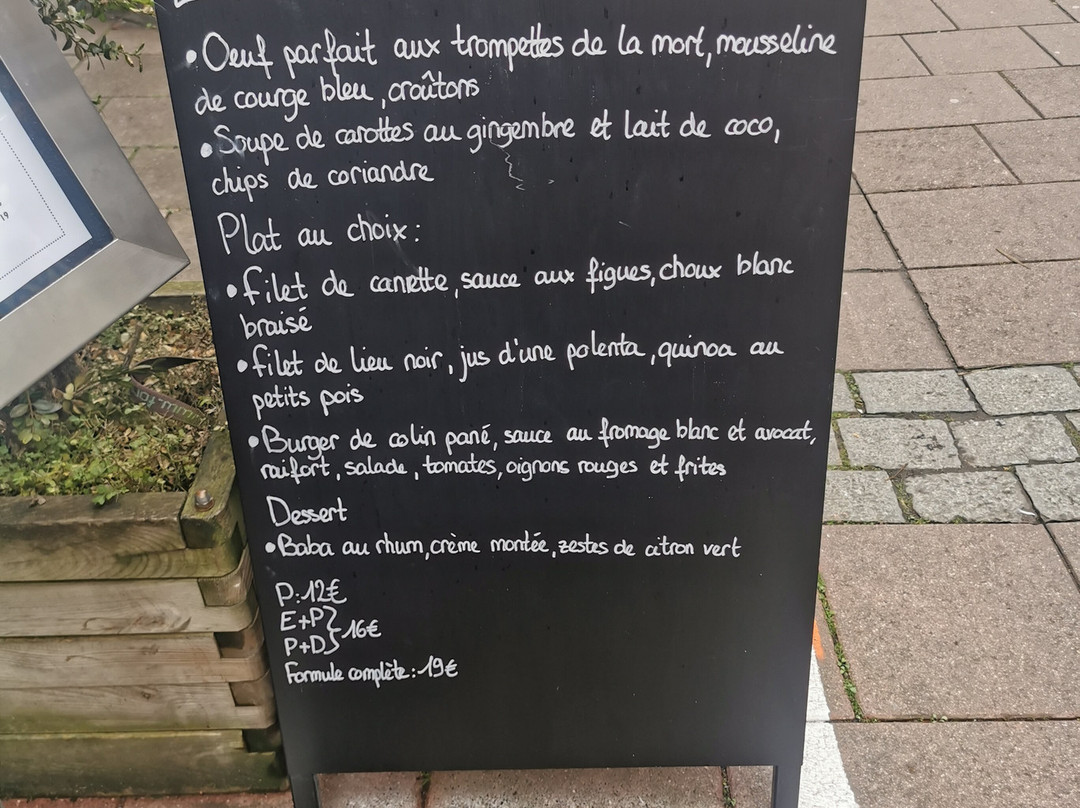 • Oeuf parfait aux trompettes de la mort, mousseline
de courge bleu, croûtons
• Soupe de carottes au gingembre et lait de coco,
chips de coriandre
Plat au choix :
• filet de canette, sauce aux figues, choux blanc
braisé
• filet de lieu noir, jus d'une polenta, quinoa au
petits pois
• Burger de colin pané, sauce au fromage blanc et avocat,
raifort, salade, tomates, oignons rouges et frites
Dessert
• Baba au rhum, crème montée, zestes de citron vert
P: 12€
E+P
P+D } 16€
Formule complète : 19€
19